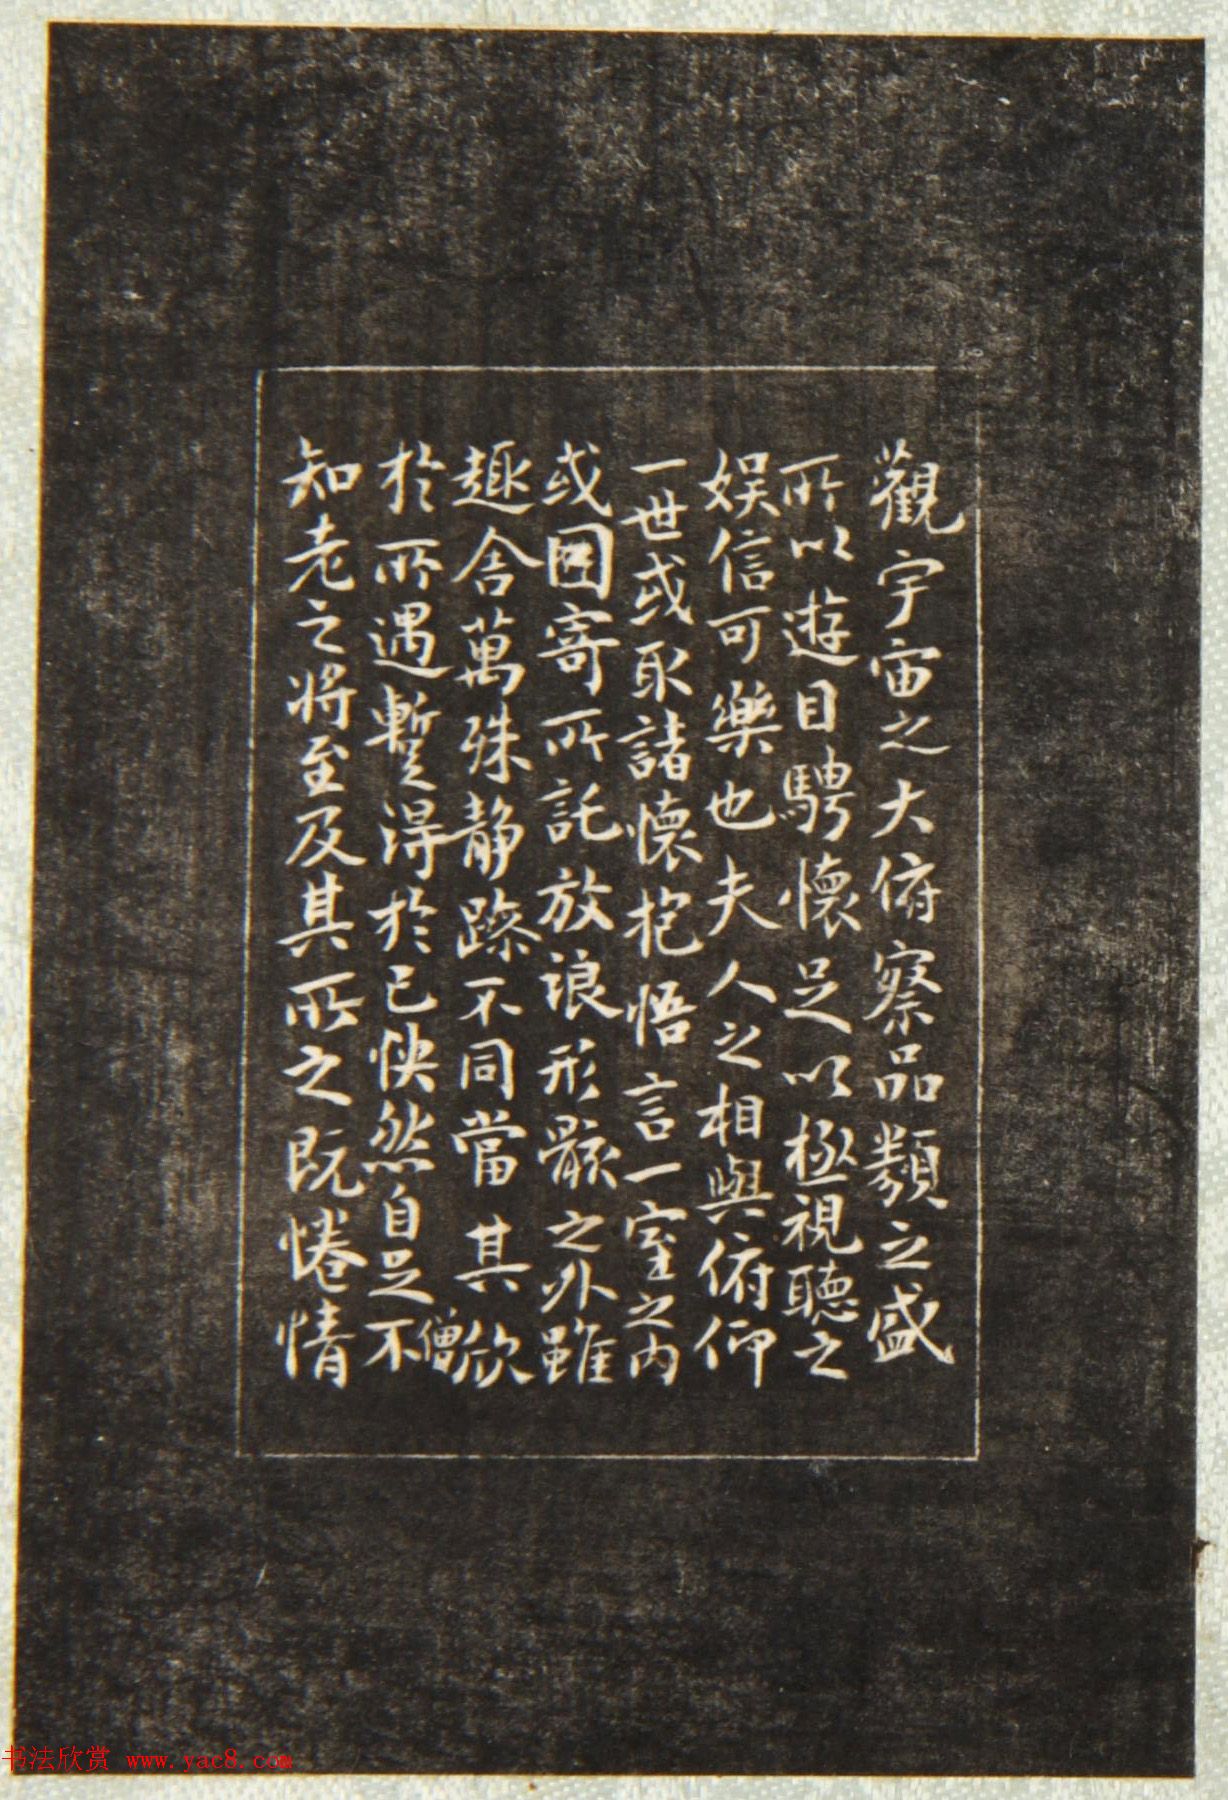 觀宇宙之大俯察品類之盛
所以遊目騁懷足以極視聽之
娛信可樂也夫人之相與俯仰
一世或取諸懷抱悟言一室之內
或因寄所託放浪形骸之外雖
趣舍萬殊静躁不同當其欣
於所遇暫得於己怏然自足不
僧
知老之將至及其所之既惓情
书法欣赏 www.yac8.com